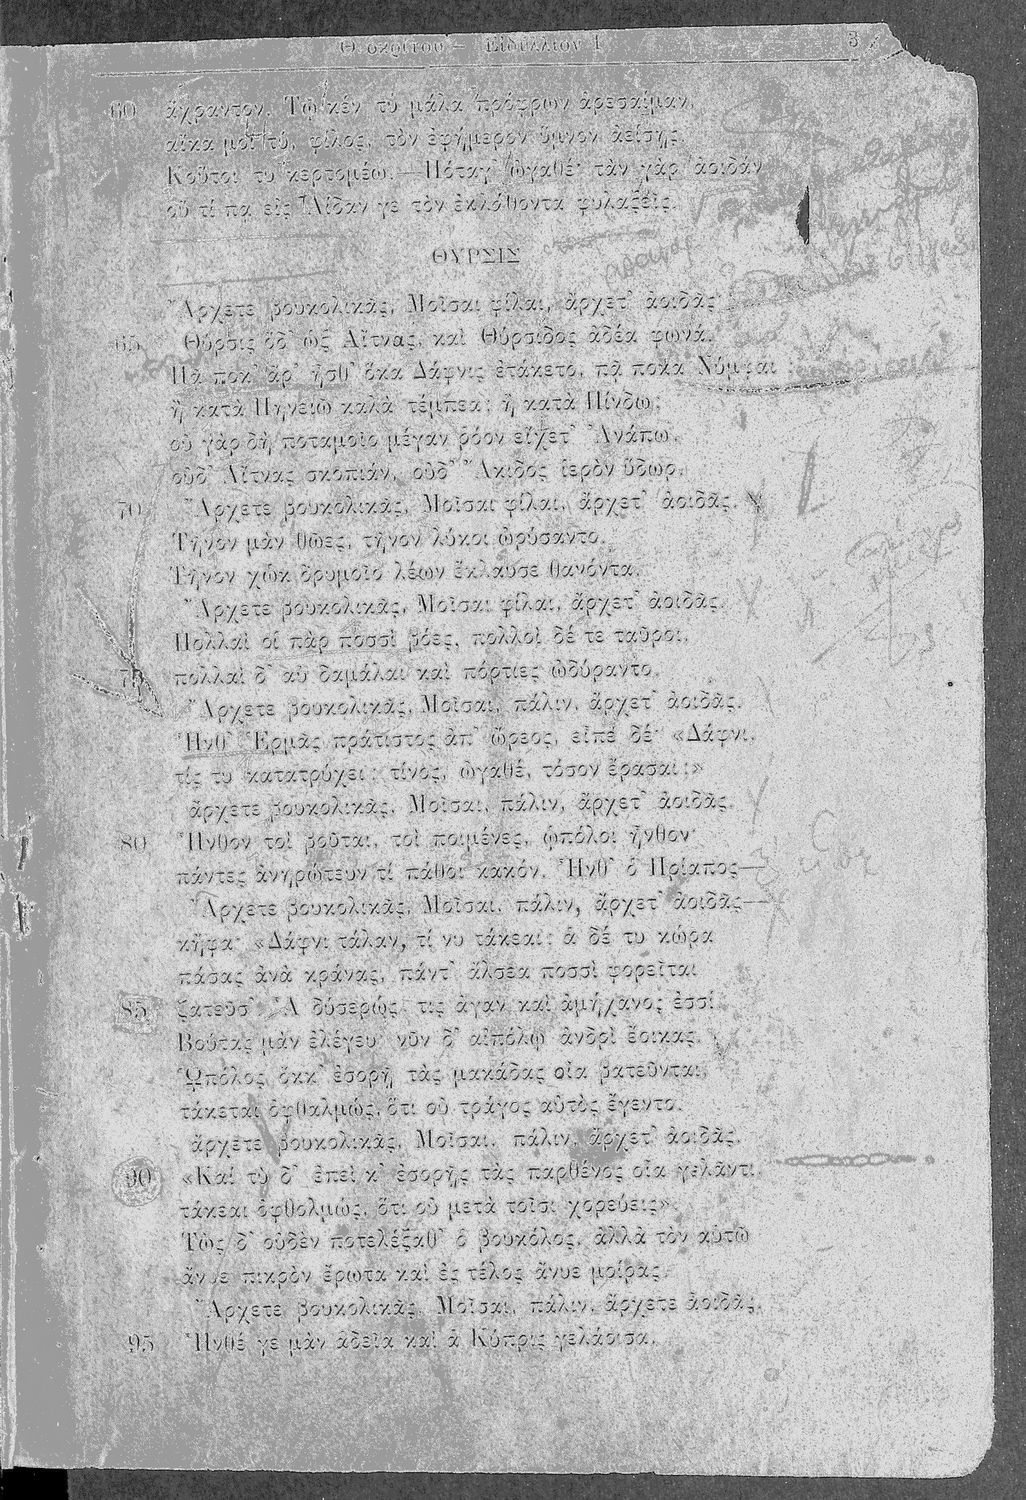 Θεοκρίτου — Εἰδύλλιον Ι 3
60 ἄχραντον. Τῷ κέν τὺ μάλα πρόφρων ἀρεσαίμαν,
αἴκα μοι τύ, φίλος, τὸν ἐφήμερον ὕμνον ἀείσῃς.
Κοὔτοι τυ κερτομέω.—Πόταγ' ὠγαθέ· τὰν γὰρ ἀοιδάν
οὔ τί πα εἰς Ἀΐδαν γε τὸν ἐκλάθοντα φυλαξεῖς.
ΘΥΡΣΙΣ
Ἄρχετε βουκολικᾶς, Μοῖσαι φίλαι, ἄρχετ' ἀοιδᾶς·
65 Θύρσις ὅδ' ὡξ Αἴτνας, καὶ Θύρσιδος ἁδέα φωνά.
Πᾶ ποκ' ἄρ' ἦσθ' ὅκα Δάφνις ἐτάκετο, πᾷ ποκα Νύμφαι;
ἢ κατὰ Πηνειῶ καλὰ τέμπεα; ἢ κατὰ Πίνδω;
οὐ γὰρ δὴ ποταμοῖο μέγαν ῥόον εἴχετ' Ἀνάπω,
οὐδ' Αἴτνας σκοπιάν, οὐδ' Ἄκιδος ἱερὸν ὕδωρ.
70 Ἄρχετε βουκολικᾶς, Μοῖσαι φίλαι, ἄρχετ' ἀοιδᾶς.
Τῆνον μὰν θῶες, τῆνον λύκοι ὠρύσαντο.
Τῆνον χὠκ δρυμοῖο λέων ἔκλαυσε θανόντα.
Ἄρχετε βουκολικᾶς, Μοῖσαι φίλαι, ἄρχετ' ἀοιδᾶς.
Πολλαὶ οἱ πὰρ ποσσὶ βόες, πολλοὶ δέ τε ταῦροι,
75 πολλαὶ δ' αὖ δαμάλαι καὶ πόρτιες ὠδύραντο.
Ἄρχετε βουκολικᾶς, Μοῖσαι, πάλιν, ἄρχετ' ἀοιδᾶς.
Ἦνθ' Ἑρμᾶς πράτιστος ἀπ' ὤρεος, εἶπε δέ· «Δάφνι,
τίς τυ κατατρύχει; τίνος, ὠγαθέ, τόσον ἔρασαι;»
ἄρχετε βουκολικᾶς, Μοῖσαι, πάλιν, ἄρχετ' ἀοιδᾶς.
80 Ἦνθον τοὶ βοῦται, τοὶ ποιμένες, ᾡπόλοι ἦνθον·
πάντες ἀνηρώτευν τί πάθοι κακόν. Ἦνθ' ὁ Πρίαπος—
Ἄρχετε βουκολικᾶς, Μοῖσαι, πάλιν, ἄρχετ' ἀοιδᾶς—
κἤφα· «Δάφνι τάλαν, τί νυ τάκεαι; ἁ δέ τυ κώρα
πάσας ἀνὰ κράνας, πάντ' ἄλσεα ποσσὶ φορεῖται
85 ζατεῦσ' Ἆ δύσερώς τις ἄγαν καὶ ἀμήχανος ἐσσί.
Βούτας μὰν ἐλέγευ· νῦν δ' αἰπόλῳ ἀνδρὶ ἔοικας.
Ὡπόλος ὅκκ' ἐσορῇ τὰς μακάδας οἷα βατεῦνται,
τάκεται ὀφθαλμώς, ὅτι οὐ τράγος αὐτὸς ἔγεντο.
ἄρχετε βουκολικᾶς, Μοῖσαι, πάλιν, ἄρχετ' ἀοιδᾶς.
90 «Καὶ τὺ δ' ἐπεί κ' ἐσορῇς τὰς παρθένος οἷα γελᾶντι,
τάκεαι ὀφθολμώς, ὅτι οὐ μετὰ τοῖσι χορεύεις».
Τὼς δ' οὐδὲν ποτελέξαθ' ὁ βουκόλος, ἀλλὰ τὸν αὑτῶ
ἄνυε πικρὸν ἔρωτα καὶ ἐς τέλος ἄνυε μοίρας.
Ἄρχετε βουκολικᾶς, Μοῖσαι, πάλιν, ἄρχετε ἀοιδᾶς.
95 Ἦνθέ γε μὰν ἁδεῖα καὶ ἁ Κύπρις γελάοισα,